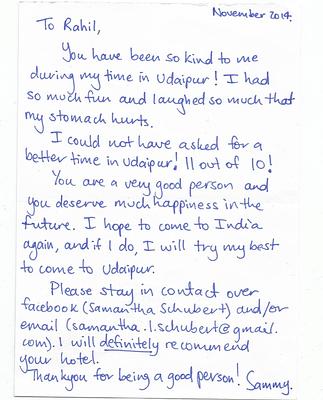 November 2014.
To Rahil,
You have been so kind to me
during my time in Udaipur! I had
so much fun and laughed so much that
my stomach hurts.
I could not have asked for a
better time in Udaipur! 11 out of 10!
You are a very good person and
you deserve much happiness in the
future. I hope to come to India
again, and if I do, I will try my best
to come to Udaipur.
Please stay in contact over
facebook (Samantha Schubert) and/or
email (samantha.l.schubert@gmail.
com). I will definitely recommend
your hotel.
Thankyou for being a good person! Sammy.